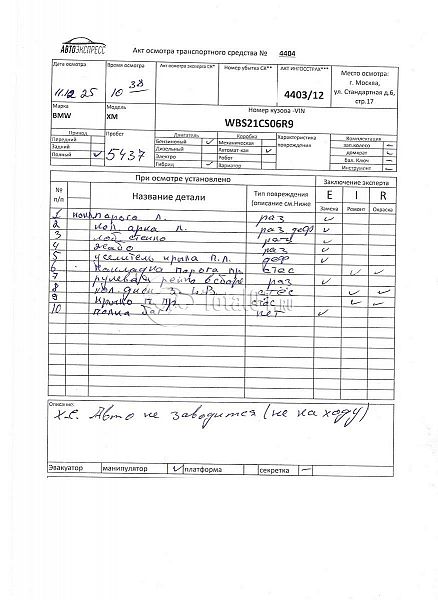 АВТОЭКСПРЕСС
Акт осмотра транспортного средства № 4404
Дата осмотра
Время осмотра
Акт осмотра эксперта СК*
Номер убытка СК**
АКТ ИНГОССТРАХ***
Место осмотра:
г. Москва,
ул. Стандартная д.6,
стр.17
11.12.25
10 38
4403/12
Марка
Модель
Номер кузова -VIN
BMW
XM
WBS21CS06R9
Привод
Пробег
Двигатель
Коробка
Характеристика повреждения
Комплектация
Передний
Бензиновый ✓
Механическая
зап.колесо —
Задний
Дизельный
Автомат-кая ✓
домкрат
Полный ✓
5437
Электро
Робот
бал. Ключ —
Гибрид
Вариатор
Инструмент
При осмотре установлено
Заключение эксперта
№ п/п
Название детали
Тип повреждения (описание см.Ниже
E
I
R
Замена
Ремонт
Окраска
1 порога л. раз ✓
2 арка л. раз деф ✓
3 лоб стекло ✓
4 жабо раз ✓
5 крыла п.л. деф ✓
6 накладка порога пр. ✓ ✓
7 рулевая рейка в сборе раз ✓
8 кол. диск з. ✓
9 крыло п пр. ✓ ✓
10 полка баг нет ✓
Total
Описание:
Х.С. Авто не заводится (не на ходу)
Эвакуатор
манипулятор ✓
платформа
секретка —